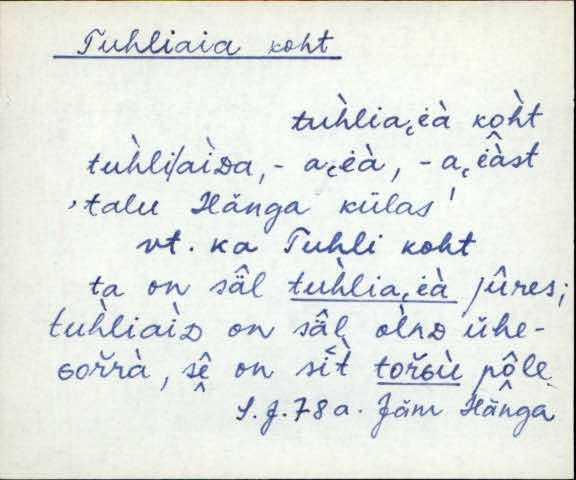 Tuhliaia koht
tuh̀lia꜀èà koh̀t
tuh̀li/aìᴅa, - a꜀èà, - a꜀èà̭st
'talu Hänga külas'
vt. ka Tuhli koht
ta on sâl tuh̀lia꜀èà jûres;
tuh̀liaìᴅ on sâl òlnᴅ ühe-
ɢořrà, sḙ̂ on sìt tořɢù pôle
S.J. 78 a. Jäm Hänga